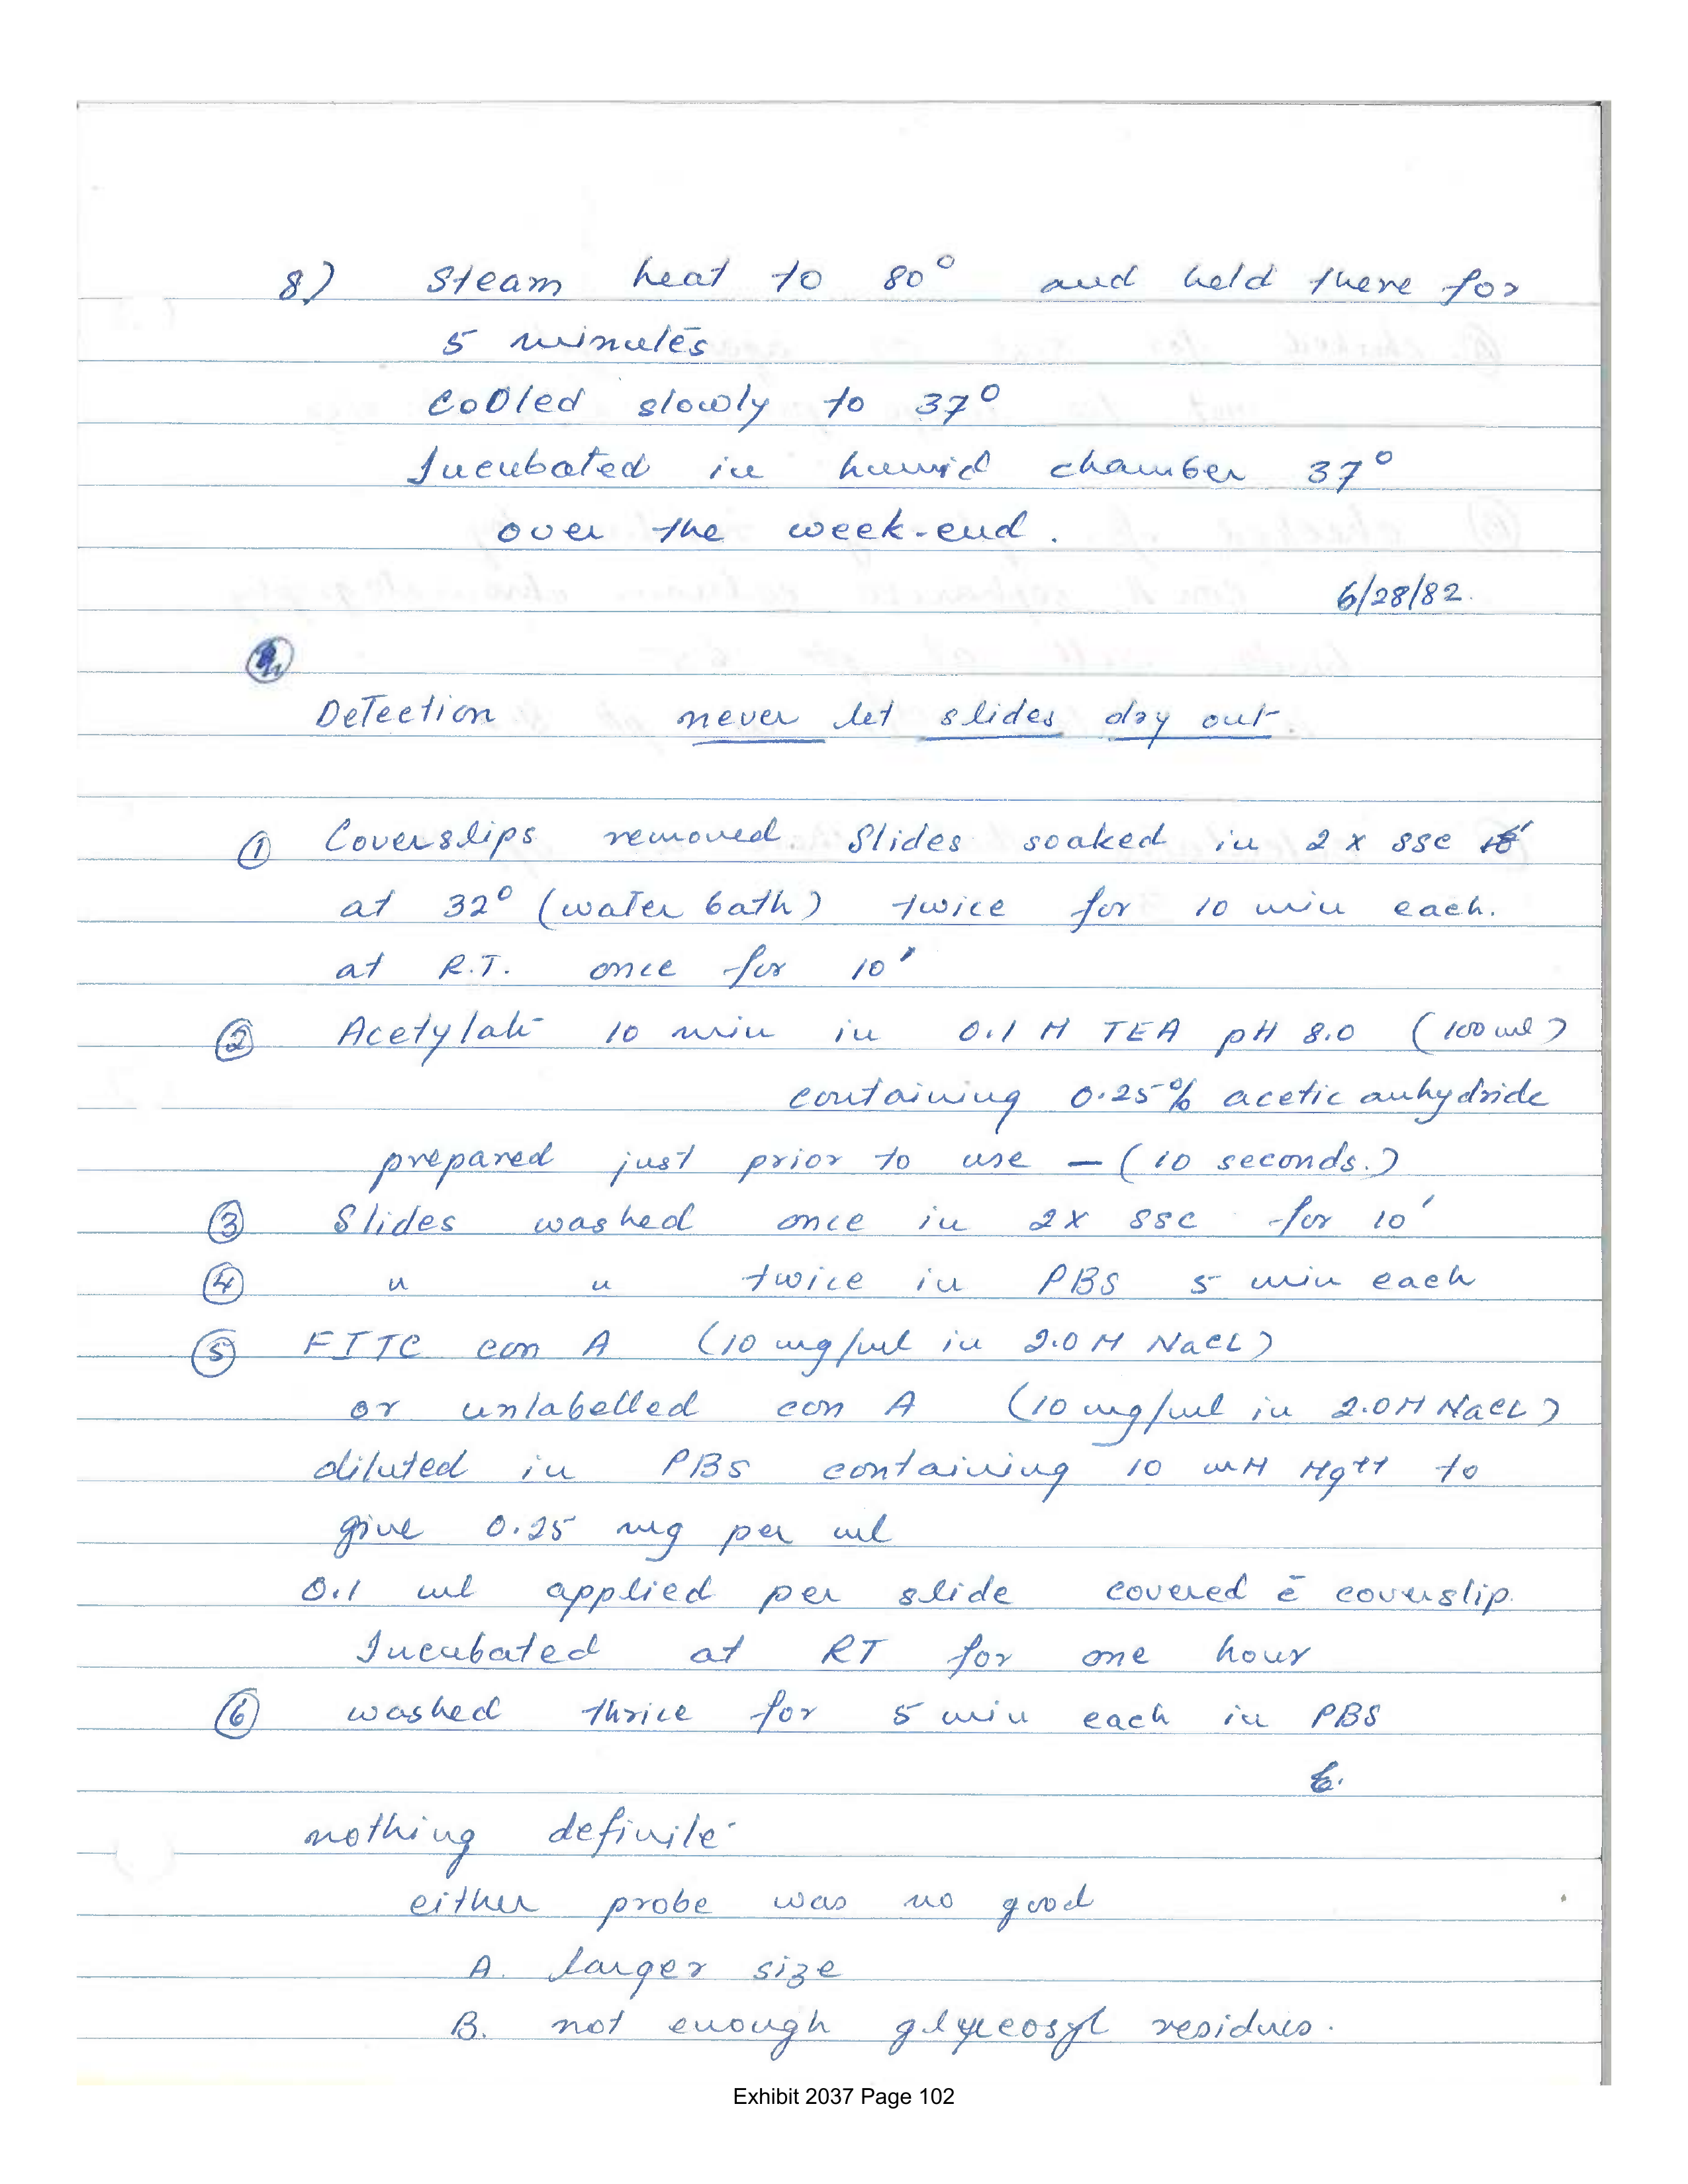 8) Steam heat to 80° and held there for
5 minutes
cooled slowly to 37°
Incubated in humid chamber 37°
over the week-end.
6/28/82.
Detection never let slides dry out
① Coverslips removed. Slides soaked in 2 x SSC
at 32° (water bath) twice for 10 min each.
at R.T. once for 10'
② Acetylate 10 min in 0.1 M TEA pH 8.0 (100 ml)
containing 0.25% acetic anhydride
prepared just prior to use — (10 seconds.)
③ Slides washed once in 2X SSC for 10'
④ " " twice in PBS 5 min each
⑤ FITC con A (10 mg/ml in 2.0 M NaCl)
or unlabelled con A (10 mg/ml in 2.0 M NaCl)
diluted in PBS containing 10 mM Mg++ to
give 0.25 mg per ml
0.1 ml applied per slide covered c̄ coverslip.
Incubated at RT for one hour
⑥ washed thrice for 5 min each in PBS
nothing definite
either probe was no good
A. larger size
B. not enough glycosyl residues.
Exhibit 2037 Page 102